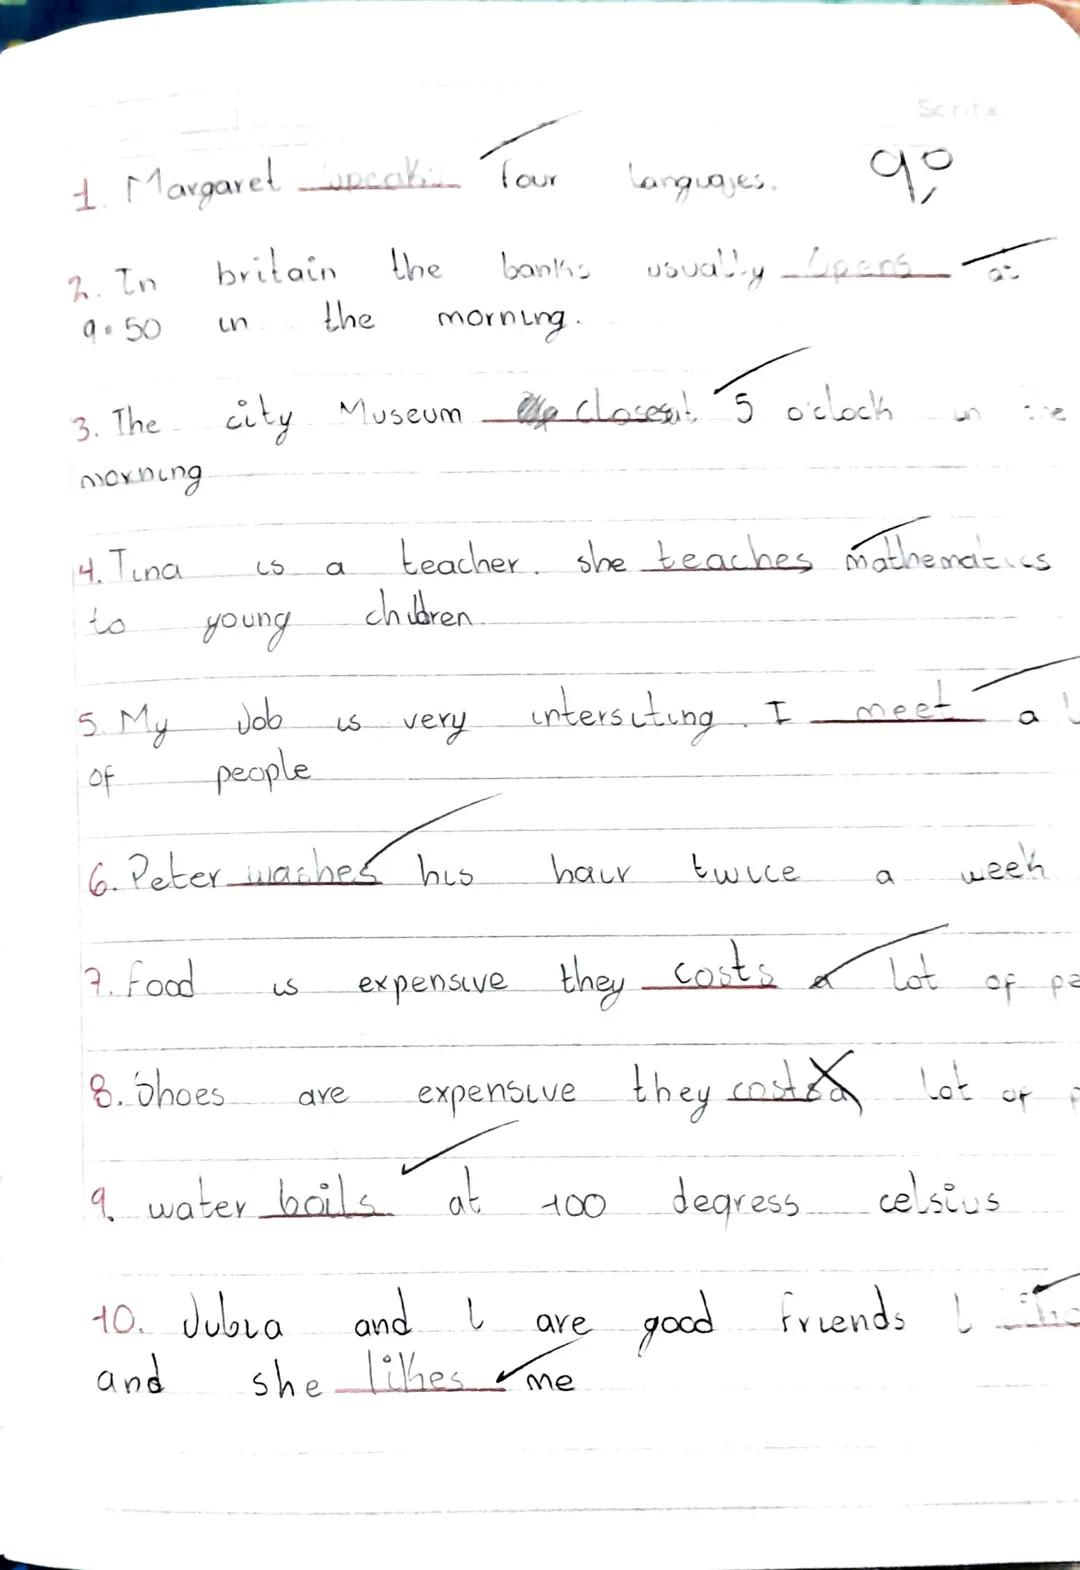 90
1. Margaret speaks four languajes.
2. In britain the banks usually opens at
9:50 in the morning.
3. The city Museum closesat 5 o'clock in
morning
4. Tina is a teacher. she teaches mathematics
to young children
5. My Job is very intersiting. I meet a
of people
6. Peter washes his hair twice a week
7. food is expensive they costs a lot of
8. Shoes are expensive they costs a lot of
9. water boils at 100 degress celsius
10. Julia and I are good friends I
and she likes me